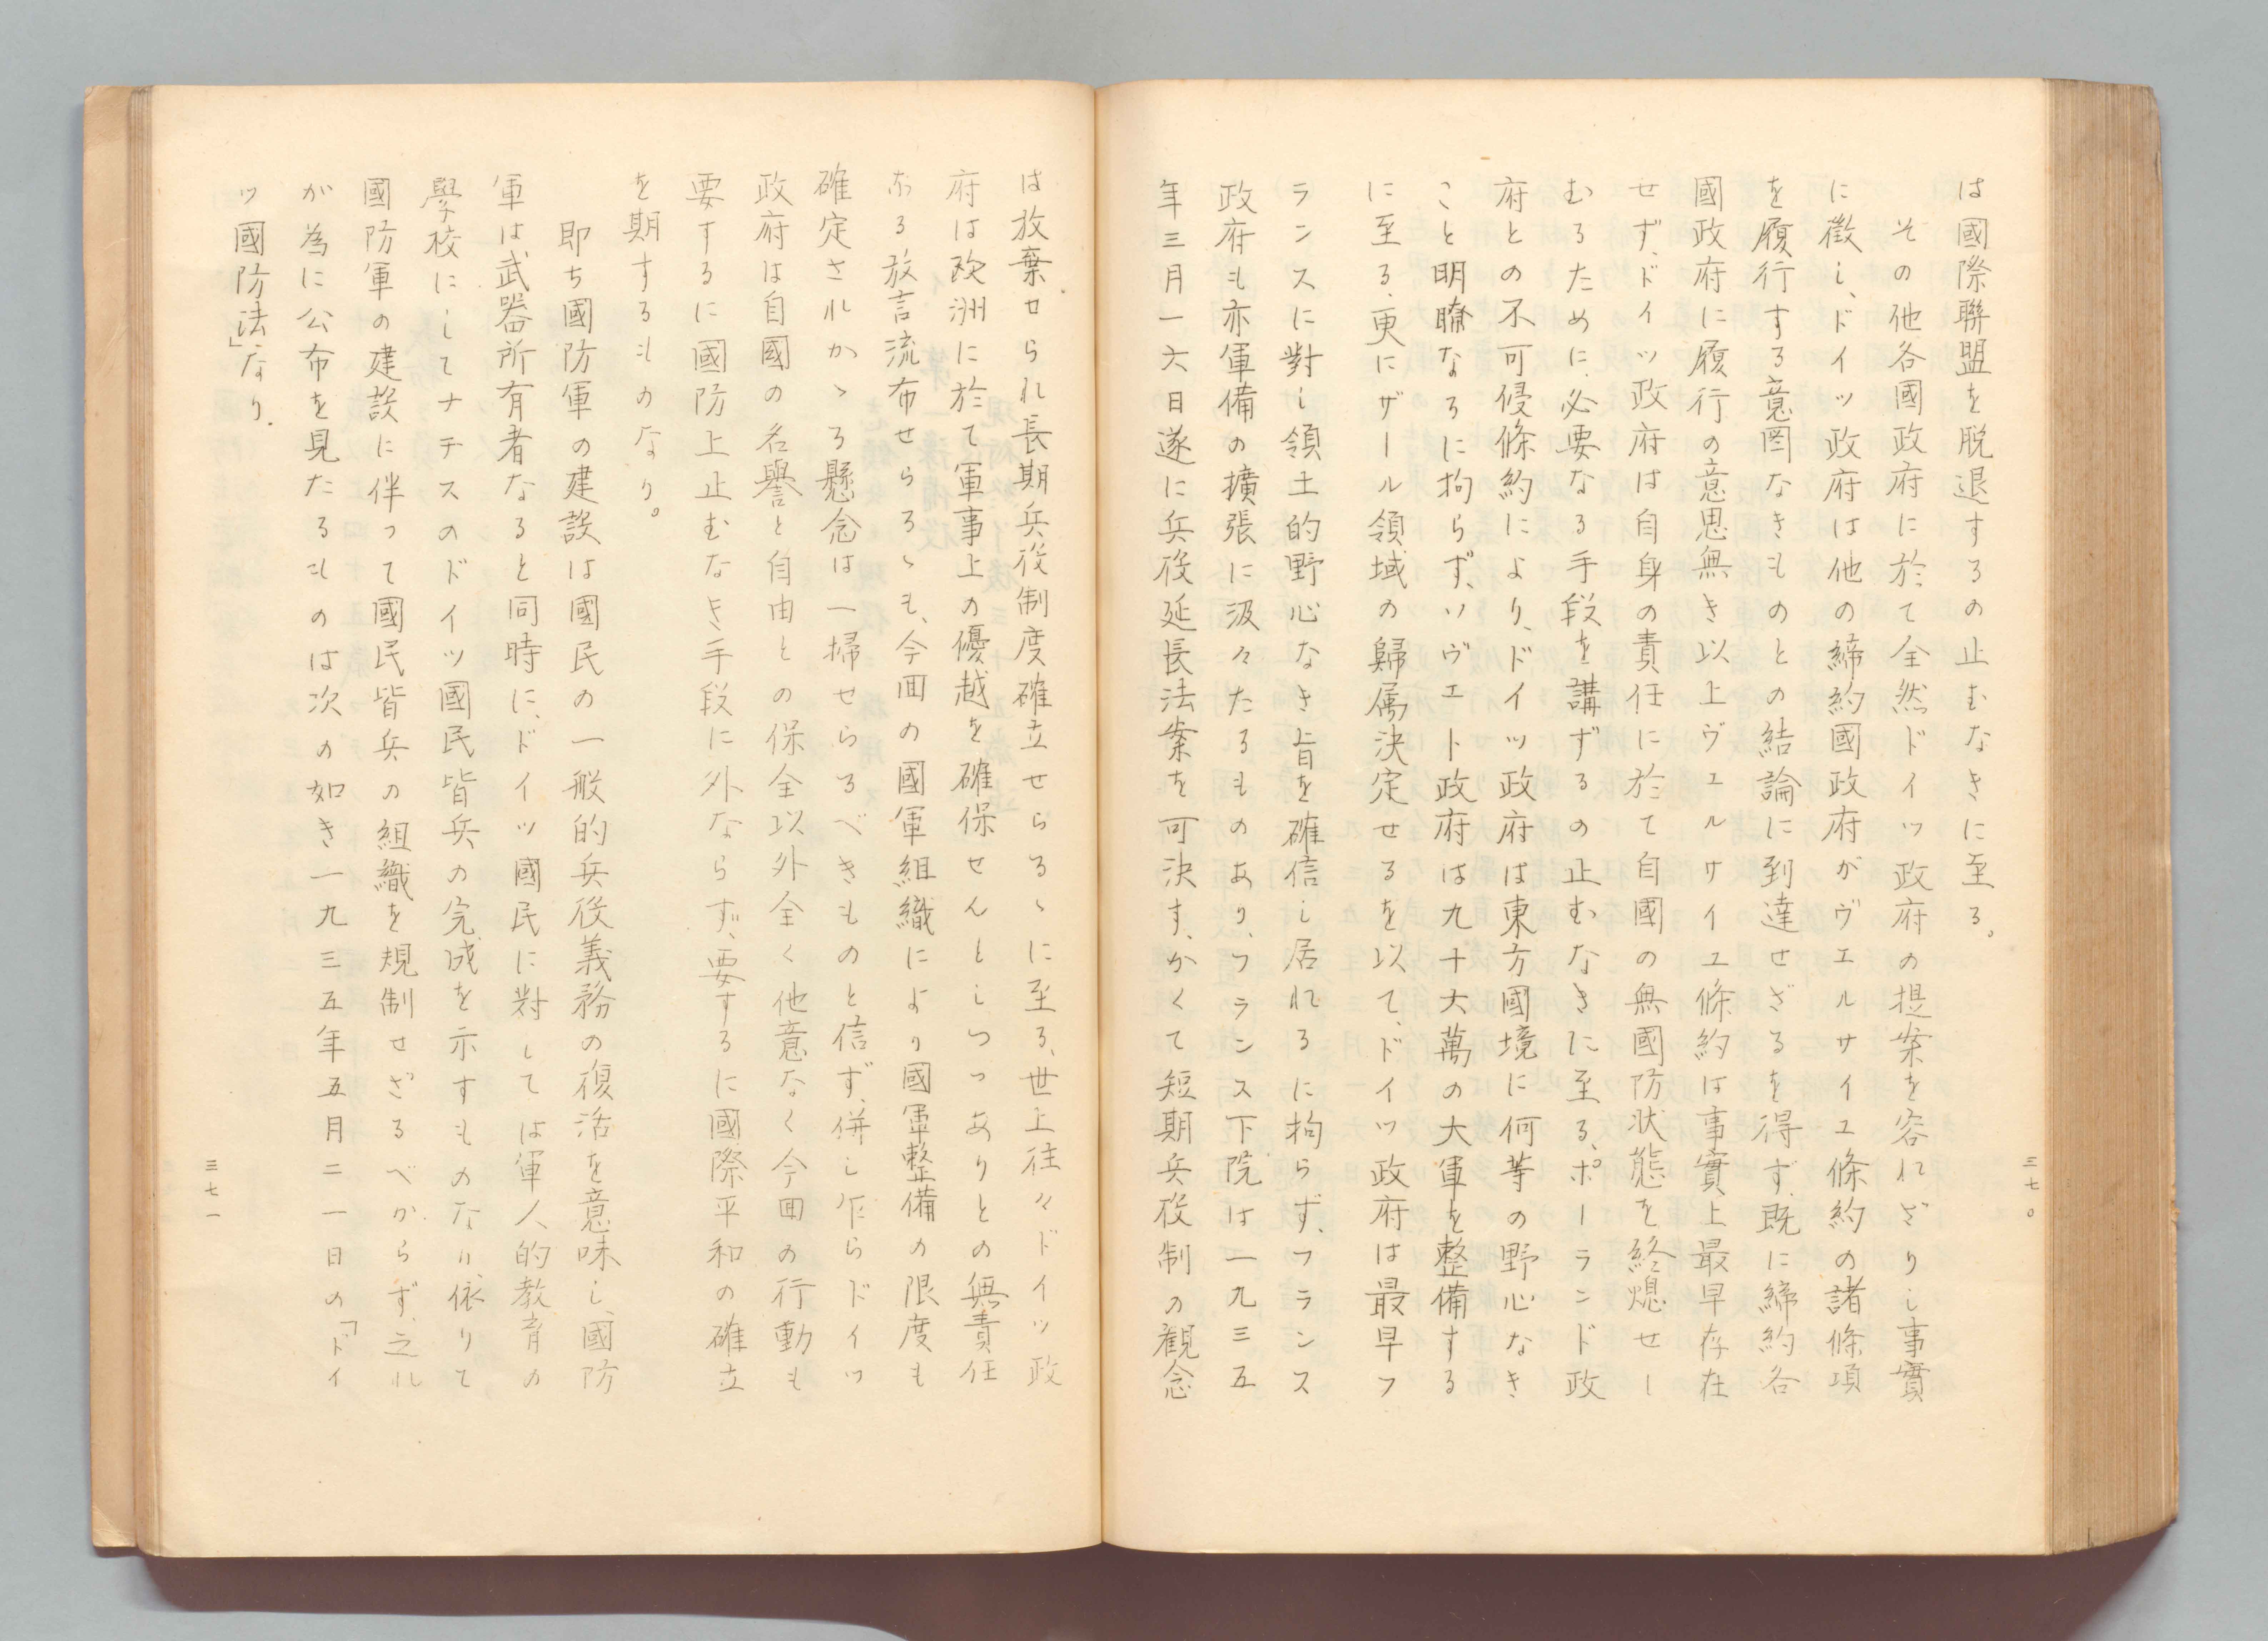 は國際聯盟を脱退するの止むなきに至る。
その他各國政府に於て全然ドイツ政府の提案を容れざりし事實
に徴し、ドイツ政府は他の締約國政府がヴエルサイユ條約の諸條項
を履行する意圖なきものとの結論に到達せざるを得ず、既に締約各
國政府に履行の意思無き以上ヴエルサイユ條約は事實上最早存在
せず、ドイツ政府は自身の責任に於て自國の無國防状態を終熄せし
むるために、必要なる手段を講ずるの止むなきに至る、ポーランド政
府との不可侵條約により、ドイツ政府は東方國境に何等の野心なき
こと明瞭なるに拘らず、ソヴエト政府は九十六萬の大軍を整備する
に至る、更にザール領域の歸属決定せるを以て、ドイツ政府は最早フ
ランスに對し領土的野心なき旨を確信し居れるに拘らず、フランス
政府も亦軍備の擴張に汲々たるものあり、フランス下院は一九三五
年三月一六日遂に兵役延長法案を可決す、かくて短期兵役制の観念
三七〇
は放棄せられ長期兵役制度確立せらるゝに至る、世上往々ドイツ政
府は欧洲に於て軍事上の優越を確保せんとしつつありとの無責任
なる放言流布せらるゝも、今回の國軍組織により國軍整備の限度も
確定されかゝる懸念は一掃せらるべきものと信ず、併し乍らドイツ
政府は自國の名譽と自由との保全以外全く他意なく今回の行動も
要するに國防上止むなき手段に外ならず、要するに國際平和の確立
を期するものなり。
即ち國防軍の建設は國民の一般的兵役義務の復活を意味し、國防
軍は武器所有者なると同時に、ドイツ國民に對しては軍人的教育の
學校にしてナチスのドイツ國民皆兵の完成を示すものなり、依りて
國防軍の建設に伴つて國民皆兵の組織を規制せざるべからず、之れ
が為に公布を見たるものは次の如き一九三五年五月二一日の「ドイ
ツ國防法」なり.
三七一